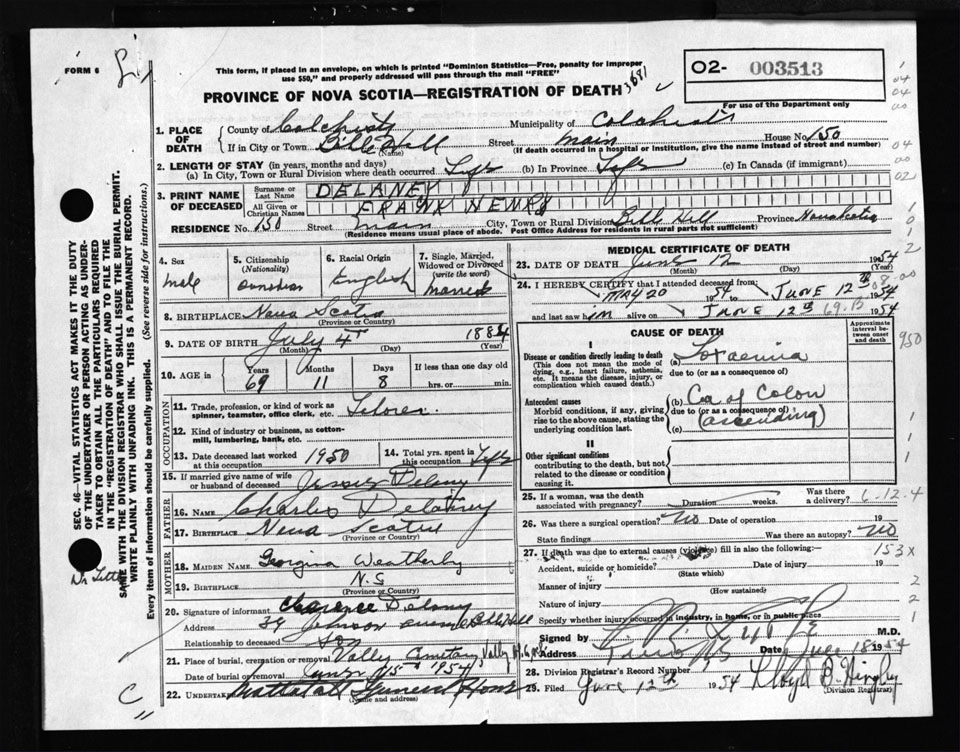 FORM 6
This form, if placed in an envelope, on which is printed "Dominion Statistics—Free, penalty for improper
use $50," and properly addressed will pass through the mail "FREE"
PROVINCE OF NOVA SCOTIA—REGISTRATION OF DEATH
3681
O2- 003513
For use of the Department only
1. PLACE OF DEATH
County of Colchester Municipality of Colchester
If in City or Town Bible Hill Street Main House No. 150
(Name) (If death occurred in a hospital or institution, give name instead of street and number)
2. LENGTH OF STAY (in years, months and days)
(a) In City, Town or Rural Division where death occurred Life (b) In Province Life (c) In Canada (if immigrant)
3. PRINT NAME OF DECEASED
Surname or Last Name DELANEY
All Given or Christian Names FRANK HENRY
RESIDENCE No. 150 Street Main City, Town or Rural Division Bible Hill Province Nova Scotia
(Residence means usual place of abode. Post Office Address for residents in rural parts not sufficient)
SEC. 46—VITAL STATISTICS ACT MAKES IT THE DUTY
OF THE UNDERTAKER OR PERSON ACTING AS UNDER-
TAKER TO OBTAIN ALL THE PARTICULARS REQUIRED
IN THE "REGISTRATION OF DEATH" AND TO FILE THE
SAME WITH THE DIVISION REGISTRAR WHO SHALL ISSUE THE BURIAL PERMIT.
WRITE PLAINLY WITH UNFADING INK. THIS IS A PERMANENT RECORD.
Every item of information should be carefully supplied. (See reverse side for instructions.)
4. Sex Male
5. Citizenship (Nationality) Canadian
6. Racial Origin English
7. Single, Married, Widowed or Divorced (write the word) Married
8. BIRTHPLACE Nova Scotia
(Province or Country)
9. DATE OF BIRTH July 4 1884
(Month) (Day) (Year)
10. AGE in Years 69 Months 11 Days 8 If less than one day old hrs. or min.
OCCUPATION
11. Trade, profession, or kind of work as
spinner, teamster, office clerk, etc.
12. Kind of industry or business, as cotton-
mill, lumbering, bank, etc.
13. Date deceased last worked at this occupation 1950
14. Total yrs. spent in this occupation Life
15. If married give name of wife
or husband of deceased
FATHER
16. NAME Charles Delaney
17. BIRTHPLACE Nova Scotia
(Province or Country)
MOTHER
18. MAIDEN NAME Georgina Weatherby
19. BIRTHPLACE N.S
(Province or Country)
20. Signature of informant Clarence Delaney
Address Johnson Avenue Bible Hill
Relationship to deceased Son
21. Place of burial, cremation or removal Valley Cemetary, Valley
Date of burial or removal June 15 1954
22. UNDERTAKER Funeral Home
(Name and address)
MEDICAL CERTIFICATE OF DEATH
23. DATE OF DEATH June 12 1954
(Month) (Day) (Year)
24. I HEREBY CERTIFY that I attended deceased from:
MAY 20 1954 JUNE 12th 1954
and last saw him alive on JUNE 12th 1954
69.B
CAUSE OF DEATH
Approximate interval between onset and death
I
Disease or condition directly leading to death
(This does not mean the mode of
dying, e.g., heart failure, asthenia,
etc. It means the disease, injury, or
complication which caused death.)
(a) Toxaemia
due to (or as a consequence of)
Antecedent causes
Morbid conditions, if any, giving
rise to the above cause, stating the
underlying condition last.
(b) Ca of Colon
due to (or as a consequence of)
(ascending)
(c)
II
Other significant conditions
contributing to the death, but not
related to the disease or condition
causing it.
25. If a woman, was the death
associated with pregnancy? Duration weeks. Was there a delivery?
6-12-4
26. Was there a surgical operation? NO Date of operation 19
State findings Was there an autopsy? NO
27. If death was due to external causes (violence) fill in also the following:—
153X
Accident, suicide or homicide? Date of injury 19
(State which)
Manner of injury
(How sustained)
Nature of injury
Specify whether injury occurred in industry, in home, or in public place
Signed by M.D.
Address Truro NS Date 18 1954
28. Division Registrar's Record Number
29. Filed June 12th 1954 Lloyd B. Hingley
(Division Registrar)
950